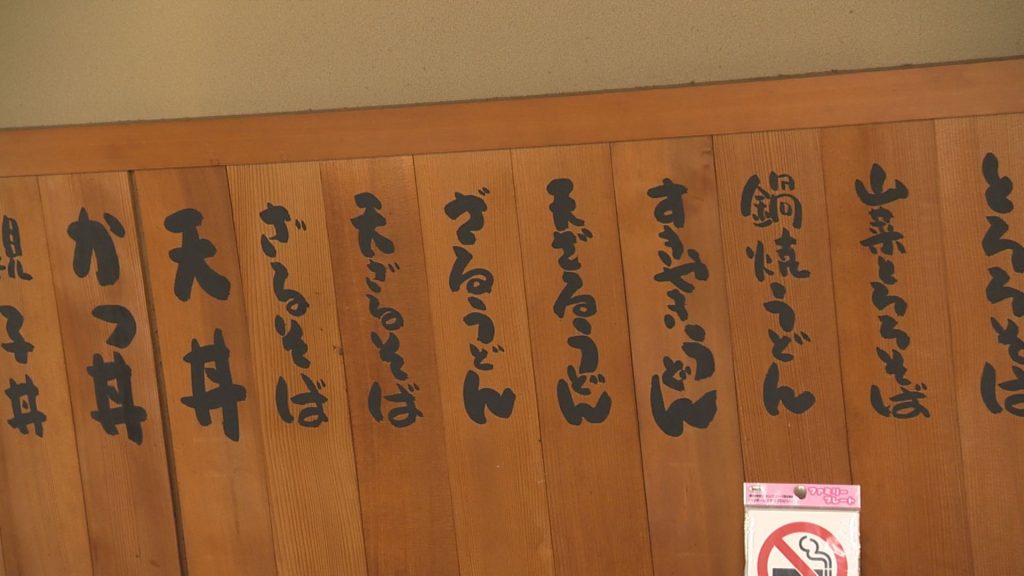 とろろそば
山菜とろろそば
鍋焼うどん
すきやきうどん
天ざるうどん
ざるうどん
天ざるそば
ざるそば
天丼
かつ丼
親子丼
ファミリー
プレート